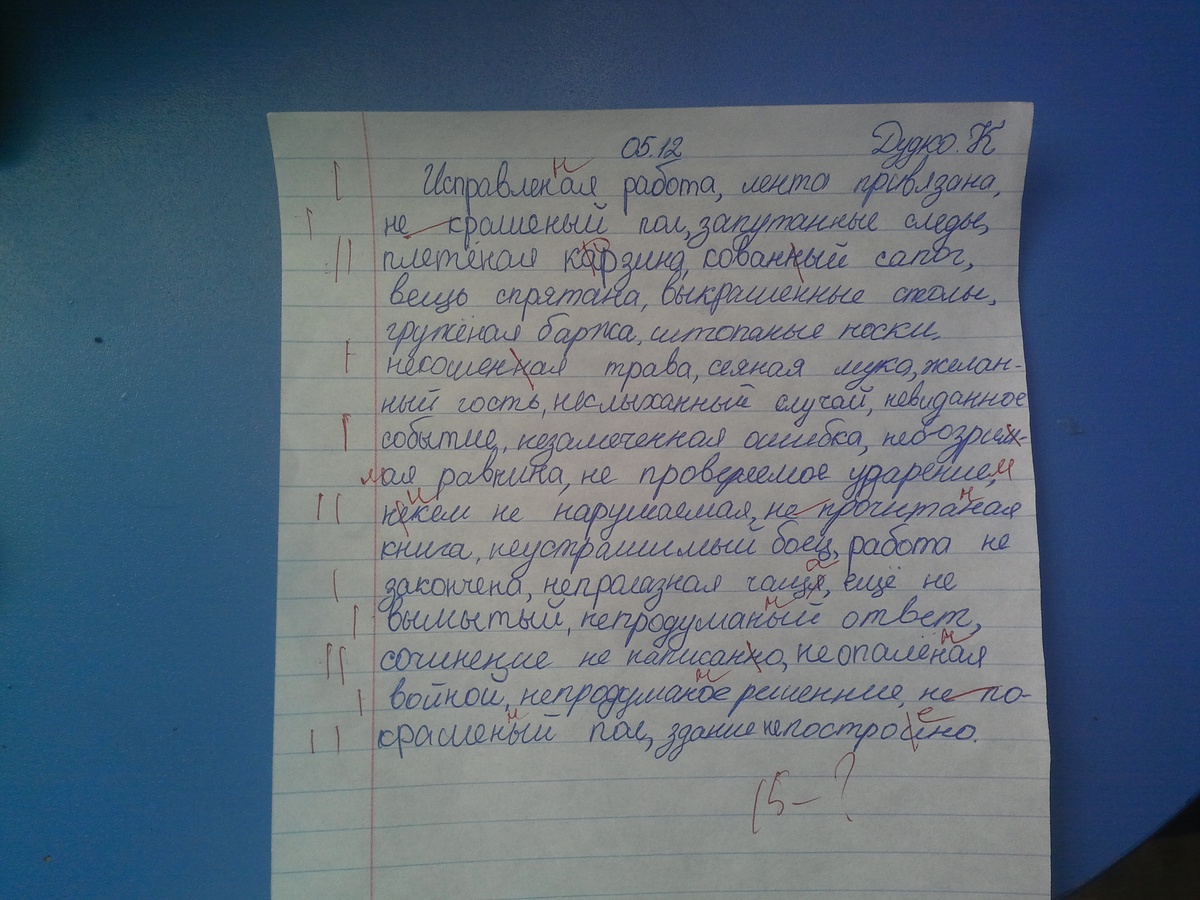 05.12 Дудко. К
Исправленая работа, лента привязана,
не крашеный пол, запутанные следы,
плетёная карзина, кованный сапог,
вещь спрятана, выкрашенные столы,
гружёная баржа, штопаные носки.
некошенная трава, сеяная мука, желан-
ный гость, неслыханный случай, невиданное
событие, незамеченная ошибка, необозрим-
мая равнина, не проверяемое ударением
некем не нарушаемая, не прочитаная
книга, неустрашимый боец, работа не
закончена, непролазная чаща, ещё не
вымытый, непродуманый ответ,
сочинение не написанно, не опалёная
войной, непродуманое решенние, не по-
крашеный пол, здание непостройно.
15 – ?